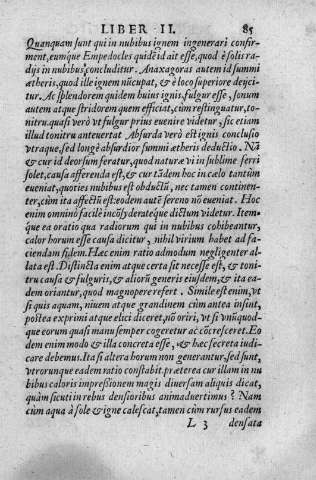 LIBER II. 85
Quanquam sunt qui in nubibus ignem ingenerari confir-
ment, eumque Empedocles quidē id ait esse, quod è solis ra-
dijs in nubibus concluditur. Anaxagoras autem id summi
ætheris, quod ille ignem nūcupat, & è loco superiore deijci-
tur. Ac splendorem quidem huius ignis, fulgur esse, sonum
autem atque stridorem quem efficiat, cùm restinguatur, to-
nitru. quasi verò vt fulgur prius euenire videtur, sic etiam
illud tonitru anteuertat Absurda verò est ignis conclusio
vtraque, sed longè absurdior summi ætheris deductio. Nā
& cur id deorsum feratur, quod naturæ vi in sublime ferri
solet, causa afferenda est, & cur tādem hoc in cælo tantùm
eueniat, quoties nubibus est obductū, nec tamen continen-
ter, cùm ita affectū est: eodem autē sereno nō eueniat. Hoc
enim omnino facilè incōsyderatéque dictum videtur. Item-
que ea oratio qua radiorum qui in nubibus cohibeantur,
calor horum esse causa dicitur, nihil virium habet ad fa-
ciendam fidem. Hec enim ratio admodum negligenter al-
lata est. Distincta enim atque certa sit necesse est, & toni-
tru causa & fulguris, & aliorū generis eiusdem, & ita ea-
dem oriantur, quod magnopere refert. Simile est enim, vt
si quis aquam, niuem atque grandinem cùm antea insint,
postea exprimi atque elici diceret, nō oriri, vt si vnūquod-
que eorum quasi manu semper cogeretur ac cōcresceret. Eo
dem enim modo & illa concreta esse, & hæc secreta iudi-
care debemus. Ita si altera horum non generantur, sed sunt,
vtrorunque eadem ratio constabit. præterea cur illam in nu
bibus caloris impressionem magis diuersam aliquis dicat,
quàm sicuti in rebus densioribus animaduertimus? Nam
cùm aqua à sole & igne calescat, tamen cùm rursus eadem
L 3 densata